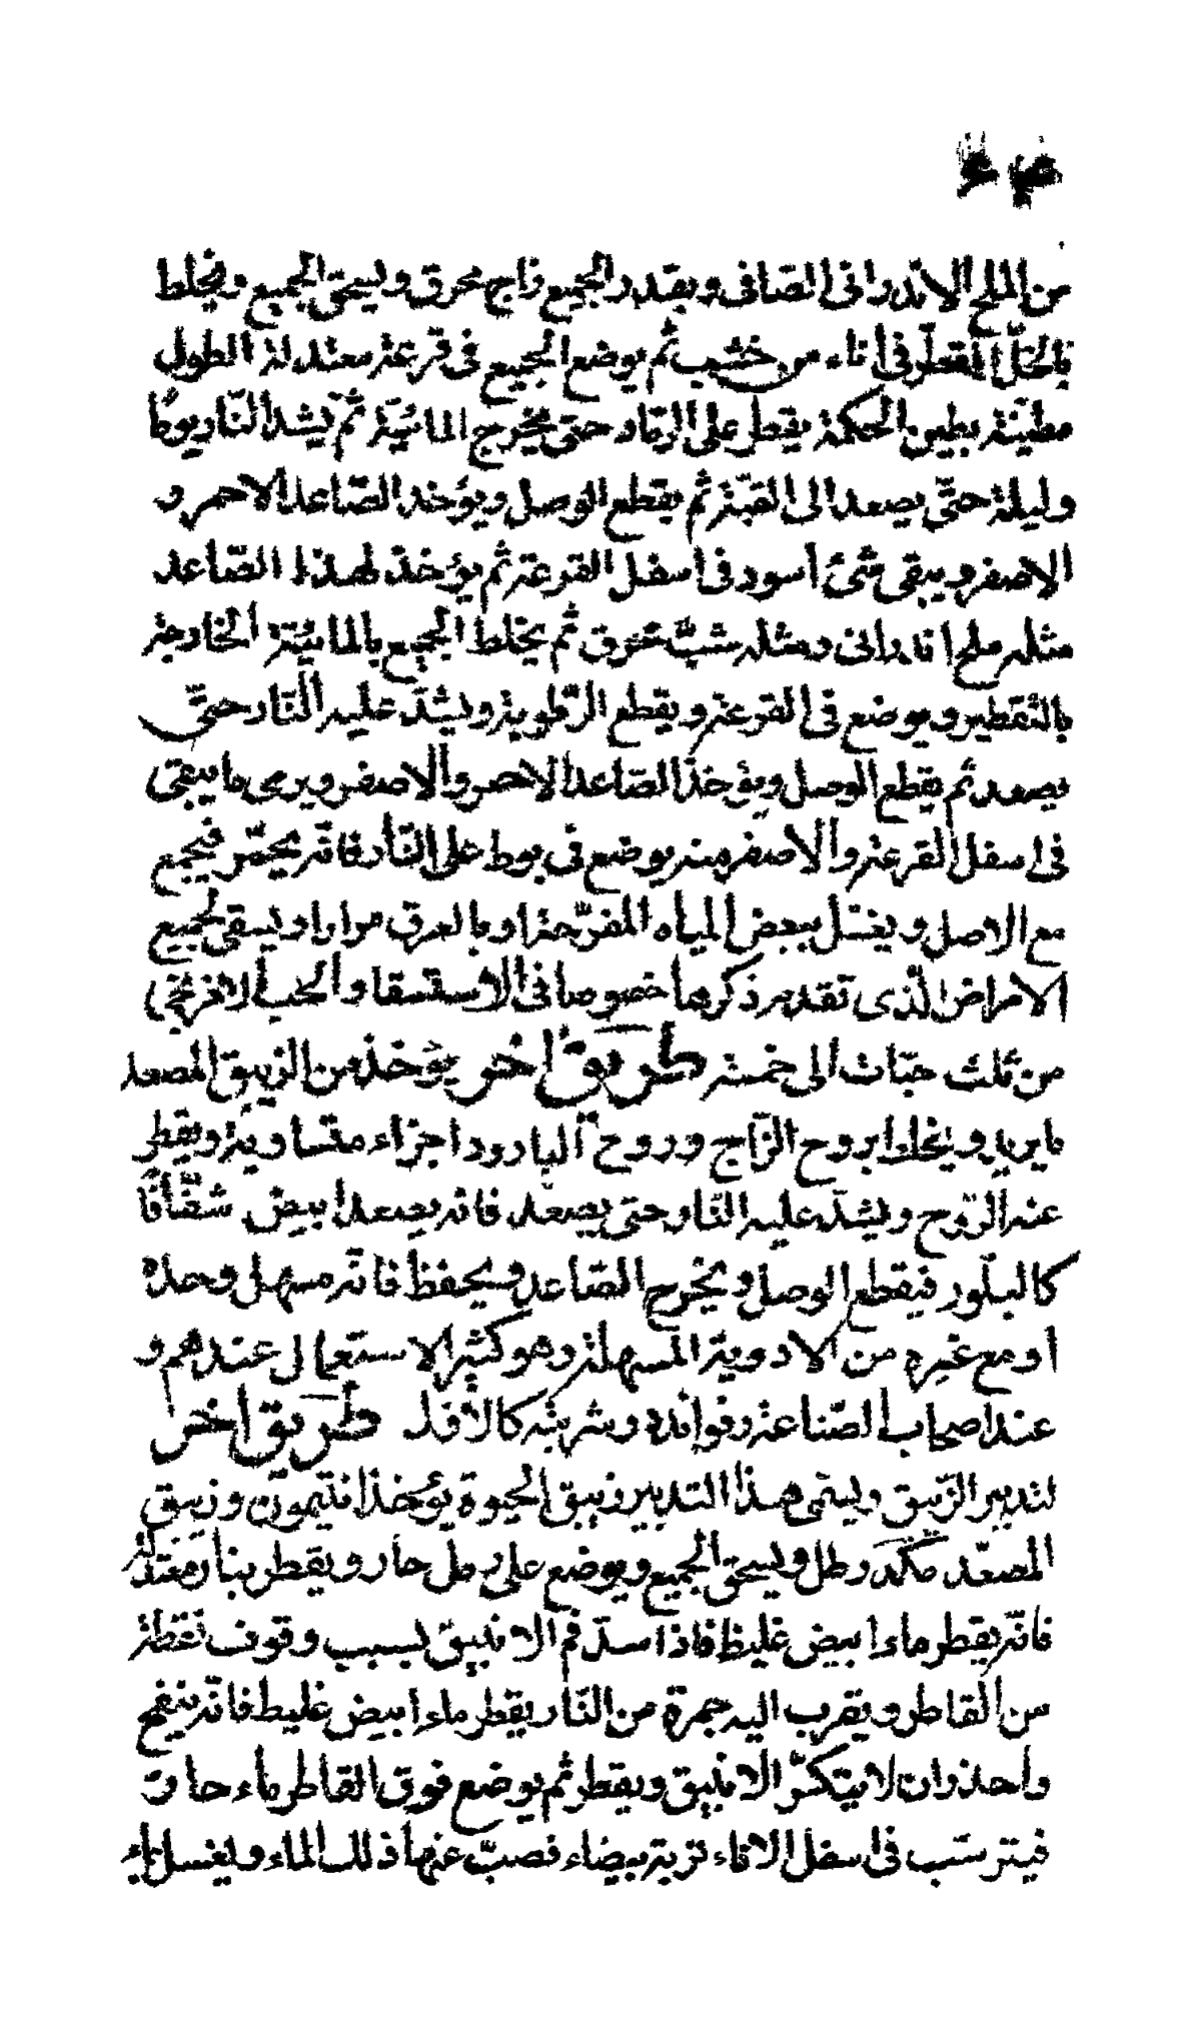 من الملح الاندرانى الصافى وبقدر الجميع زاج محرق ويسحق الجميع ويخلط
بالخلّ المقطّر فى اناء من خشب ثم يوضع الجميع فى قرعة معتدلة الطول
مطيّنة بطين الحكمة يقطر على الرّماد حتى يخرج المائيّة ثمّ يشد النّار يومًا
وليلة حتّى يصعد الى القبّة ثم يقطع الوصل ويؤخذ الصّاعد الاحمر و
الاصفر ويبقى شئ اسود فى اسفل القرعة ثم يؤخذ لهذا الصّاعد
مثله ملح اندرانى ومثله شبّ محرق ثم يخلط الجميع بالمائيّة الخارجة
بالتقطير ويوضع فى القرعة ويقطع الرّطوبة ويشدّ عليه النّار حتّى
يصعد ثم يقطع الوصل ويؤخذ الصّاعد الاحمر والاصفر ويرمى ما يبقى
فى اسفل القرعة والاصفر منه يوضع فى بوط على النّار فانّه يحمّر فيجمع
مع الاصل ويغسل ببعض المياه المفرّحة او بالعرق مرارا ويسقى لجميع
الامراض الّذى تقدم ذكرها خصوصا فى الاستسقا والحب الافرنجى
من ثلث حبّات الى خمسة طريق اخر يؤخذ من الزيبق المصعد
ما يريد ويخلط بروح الزّاج وروح البارود اجزاء متساوية ويقطر
عنه الرّوح ويشدّ عليه النّار حتى يصعد فانه يصعد ابيض شفّافًا
كالبلّور فيقطع الوصل ويخرج الصّاعد ويحفظ فانّه مسهل وحده
او مع غيره من الادوية المسهلة وهو كثير الاستعمال عندهم و
عند اصحاب الصّناعة وفوائده وشربته كالاوّل طريق اخر
لتدبير الزّيبق ويسمّى هذا التدبير زيبق الحيوة يؤخذ انتيمون وزيبق
المصعّد من كلّ رطل ويسحق الجميع ويوضع على رمل حار ويقطر بنار معتدلة
فانّه يقطر ماء ابيض غليظ فاذا سدّ فم الانبيق بسبب وقوف نقطة
من القاطر ويقرب اليه جمرة من النّار يقطر ماء ابيض غليظ فانّه ينفتح
واحذر ان لا يتكسّر الانبيق ويقطر ثم يوضع فوق القاطر ماء حارّ
فيترسّب فى اسفل الاناء تربة بيضاء فصبّ عنها ذلك الماء ويغسل بماء